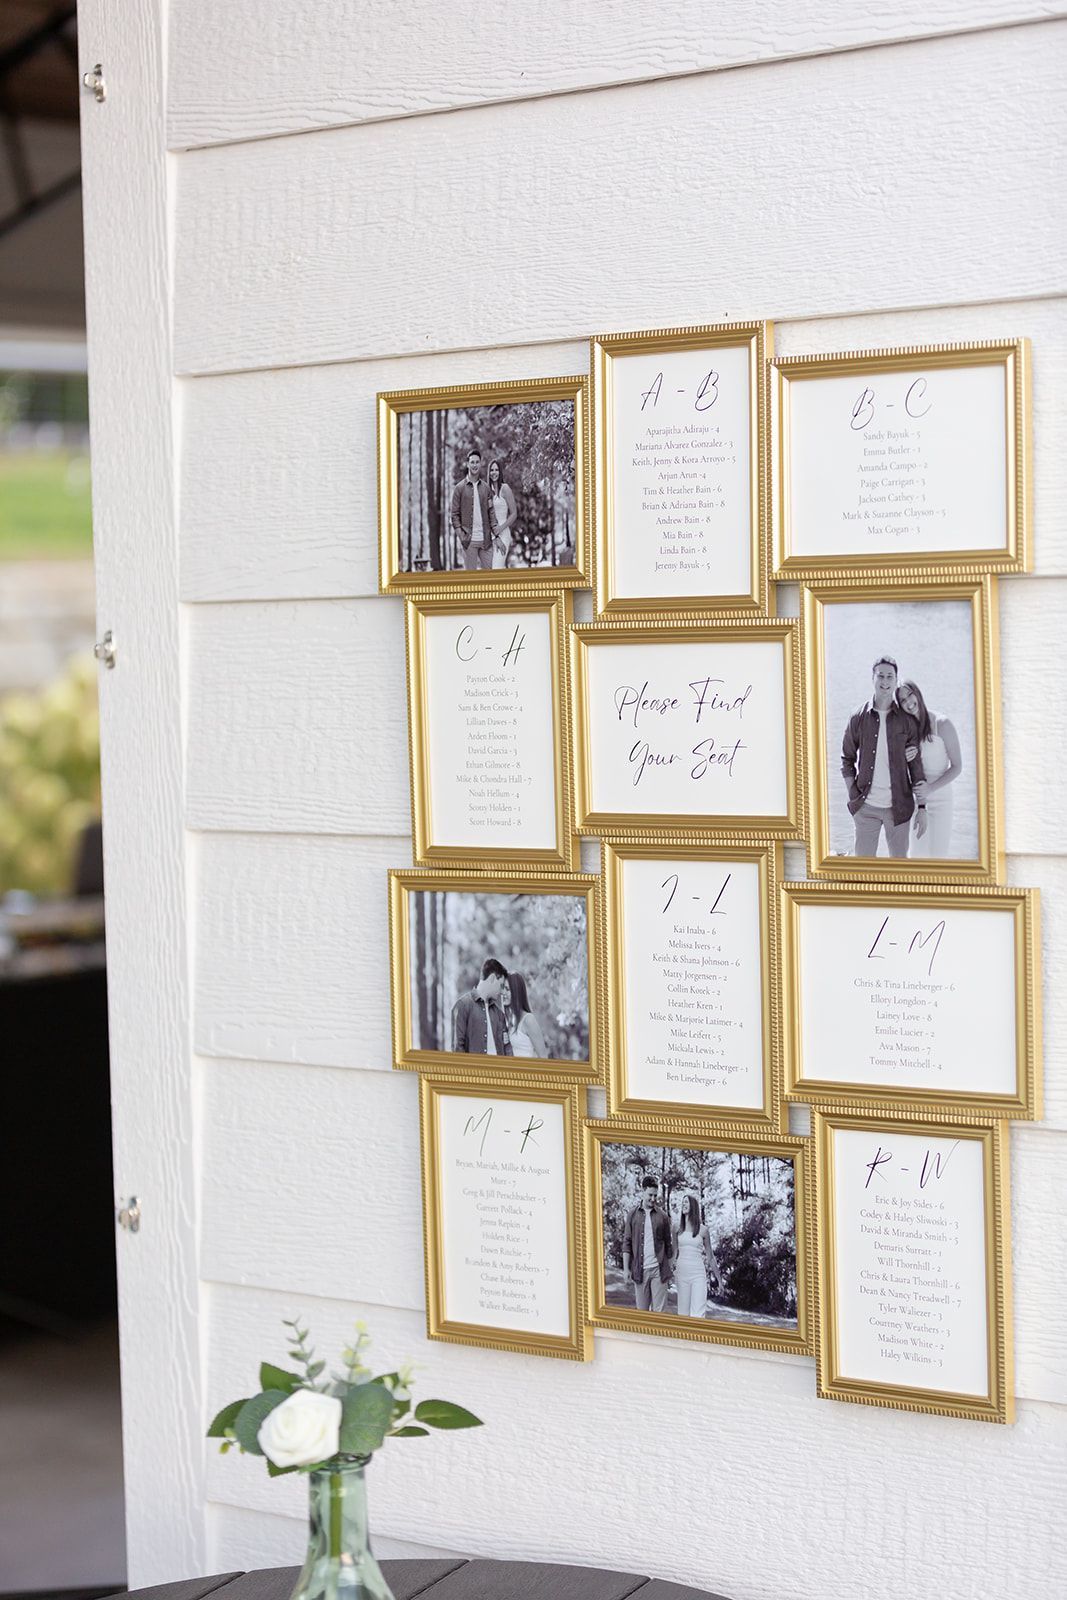 A - B
Aparajitha Adiraju - 4
Mariana Alvarez Gonzalez - 3
Keith, Jenny & Kora Arroyo - 5
Arjun Arun -4
Tim & Heather Bain - 6
Brian & Adriana Bain - 8
Andrew Bain - 8
Mia Bain - 8
Linda Bain - 8
Jeremy Bayuk - 5
B - C
Sandy Bayuk - 5
Emma Butler - 1
Amanda Campo - 2
Paige Carrigan - 3
Jackson Cathey - 3
Mark & Suzanne Clayson - 5
Max Cogan - 3
C - H
Payton Cook - 2
Madison Crick - 3
Sam & Ben Crowe - 4
Lillian Dawes - 8
Arden Floom - 1
David Garcia - 3
Ethan Gilmore - 8
Mike & Chondra Hall - 7
Noah Hellum - 4
Scotty Holden - 1
Scott Howard - 8
Please Find
Your Seat
I - L
Kai Inaba - 6
Melissa Ivers - 4
Keith & Shana Johnson - 6
Matty Jorgensen - 2
Collin Kotek - 2
Heather Kren - 1
Mike & Marjorie Latimer - 4
Mike Leifert - 5
Mickala Lewis - 2
Adam & Hannah Lineberger - 1
Ben Lineberger - 6
L - M
Chris & Tina Lineberger - 6
Ellory Longdon - 4
Lainey Love - 8
Emilie Lucier - 2
Ava Mason - 7
Tommy Mitchell - 4
M - R
Bryan, Mariah, Millie & August
Morz - 7
Greg & Jill Petschbacher - 5
Garrett Pollack - 4
Jenna Repkin - 4
Holden Rice - 1
Dawn Ritchie - 7
Brandon & Amy Roberts - 2
Chase Roberts - 8
Peyton Roberts - 8
Walker Rundlett - 3
R - W
Eric & Joy Sides - 6
Codey & Haley Sliwoski - 3
David & Miranda Smith - 5
Demaris Surratt - 1
Will Thornhill - 2
Chris & Laura Thornhill - 6
Dean & Nancy Treadwell - 7
Tyler Waliezer - 3
Courtney Weathers - 3
Madison White - 2
Haley Wilkins - 3